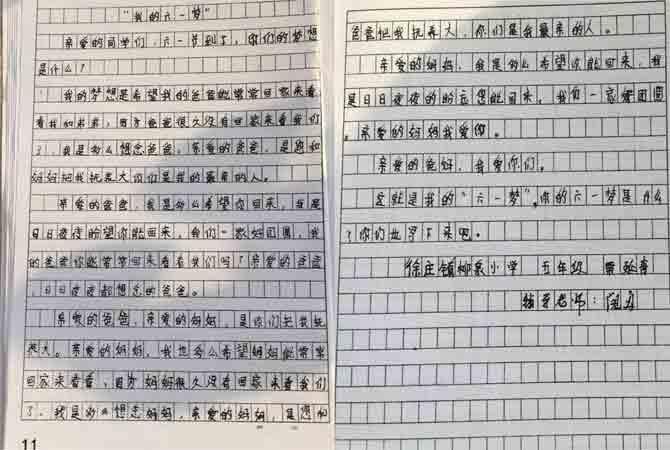 “我的六一梦”
亲爱的同学们，六一节到了，你们的梦想
是什么？
我的梦想是希望我的爸爸能常常回家来看
看我和弟弟，因为爸爸很久没有回家来看我们
了，我是多么想念爸爸，亲爱的爸爸，是您和
妈妈把我抚养大你们是我的最亲的人。
亲爱的爸爸，我是多么希望你回来，我是
日日夜夜盼望你能回来，我们一家好团圆，我
的爸爸你能常常回来看看我们吗？亲爱的爸爸
，日日夜夜都想念的爸爸。
亲爱的爸爸，亲爱的妈妈，是你们把我抚
养大。亲爱的妈妈，我也多么希望妈妈能常常
回家来看看，因为妈妈很久没有回家来看我们
了，我是多么想念妈妈，亲爱的妈妈，是您和
11
爸爸把我抚养大，你们是我最亲的人。
亲爱的妈妈，我是多么希望你能回来，我
是日日夜夜的盼望您能回来，我们一家好团圆
。亲爱的妈妈我爱你。
亲爱的爸妈，我爱你们。
这就是我的“六一梦”，你的六一梦是什么
？你们也写下来吧。
徐庄镇 小学 五年级
辅导老师：